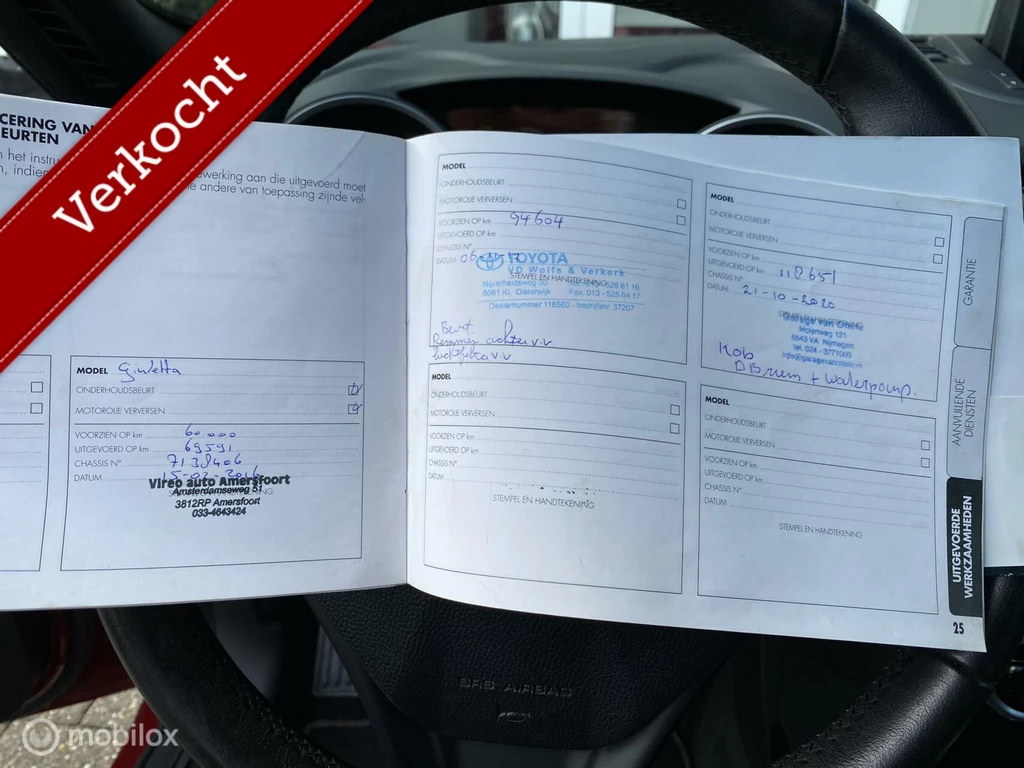 Verkocht
CERING VAN
EURTEN
n het instru
ewerking aan die uitgevoerd moet
n, indien
le andere van toepassing zijnde vel-
MODEL Giulietta
ONDERHOUDSBEURT
MOTOROLIE VERVERSEN
VOORZIEN OP km 60.000
UITGEVOERD OP km 69591
CHASSIS N° 7138406
DATUM 15-02-2016
Virep auto Amersfoort
Amsterdamseweg 51
3812RP Amersfoort
033-4643424
MODEL
ONDERHOUDSBEURT
MOTOROLIE VERVERSEN
VOORZIEN OP km 94604
UITGEVOERD OP km
CHASSIS N°
DATUM 06
TOYOTA
VD Wolfs & Verkerk
STEMPEL EN HANDTEKENING
Nijverheidsweg 30
5061 KL Oisterwijk Fax: 013 - 528 64 17
Dealernummer 116560 - bedrijfsnr. 37207
Bevet
Remmen achter v.v
luchtfilter v.v
MODEL
ONDERHOUDSBEURT
MOTOROLIE VERVERSEN
VOORZIEN OP km
UITGEVOERD OP km
CHASSIS N°
DATUM
STEMPEL EN HANDTEKENING
MODEL
ONDERHOUDSBEURT
MOTOROLIE VERVERSEN
VOORZIEN OP km
UITGEVOERD OP km 118651
CHASSIS N°
DATUM 21-10-2020
STEMPEL EN HANDTEKENING
Molenweg 121
6543 VA Nijmegen
tel. 024 - 3771009
Kob
DBriem + Waterpomp.
MODEL
ONDERHOUDSBEURT
MOTOROLIE VERVERSEN
VOORZIEN OP km
UITGEVOERD OP km
CHASSIS N°
DATUM
STEMPEL EN HANDTEKENING
GARANTIE
AANVULLENDE
DIENSTEN
UITGEVOERDE
WERKZAAMHEDEN
25
SRS AIRBAG
mobilox